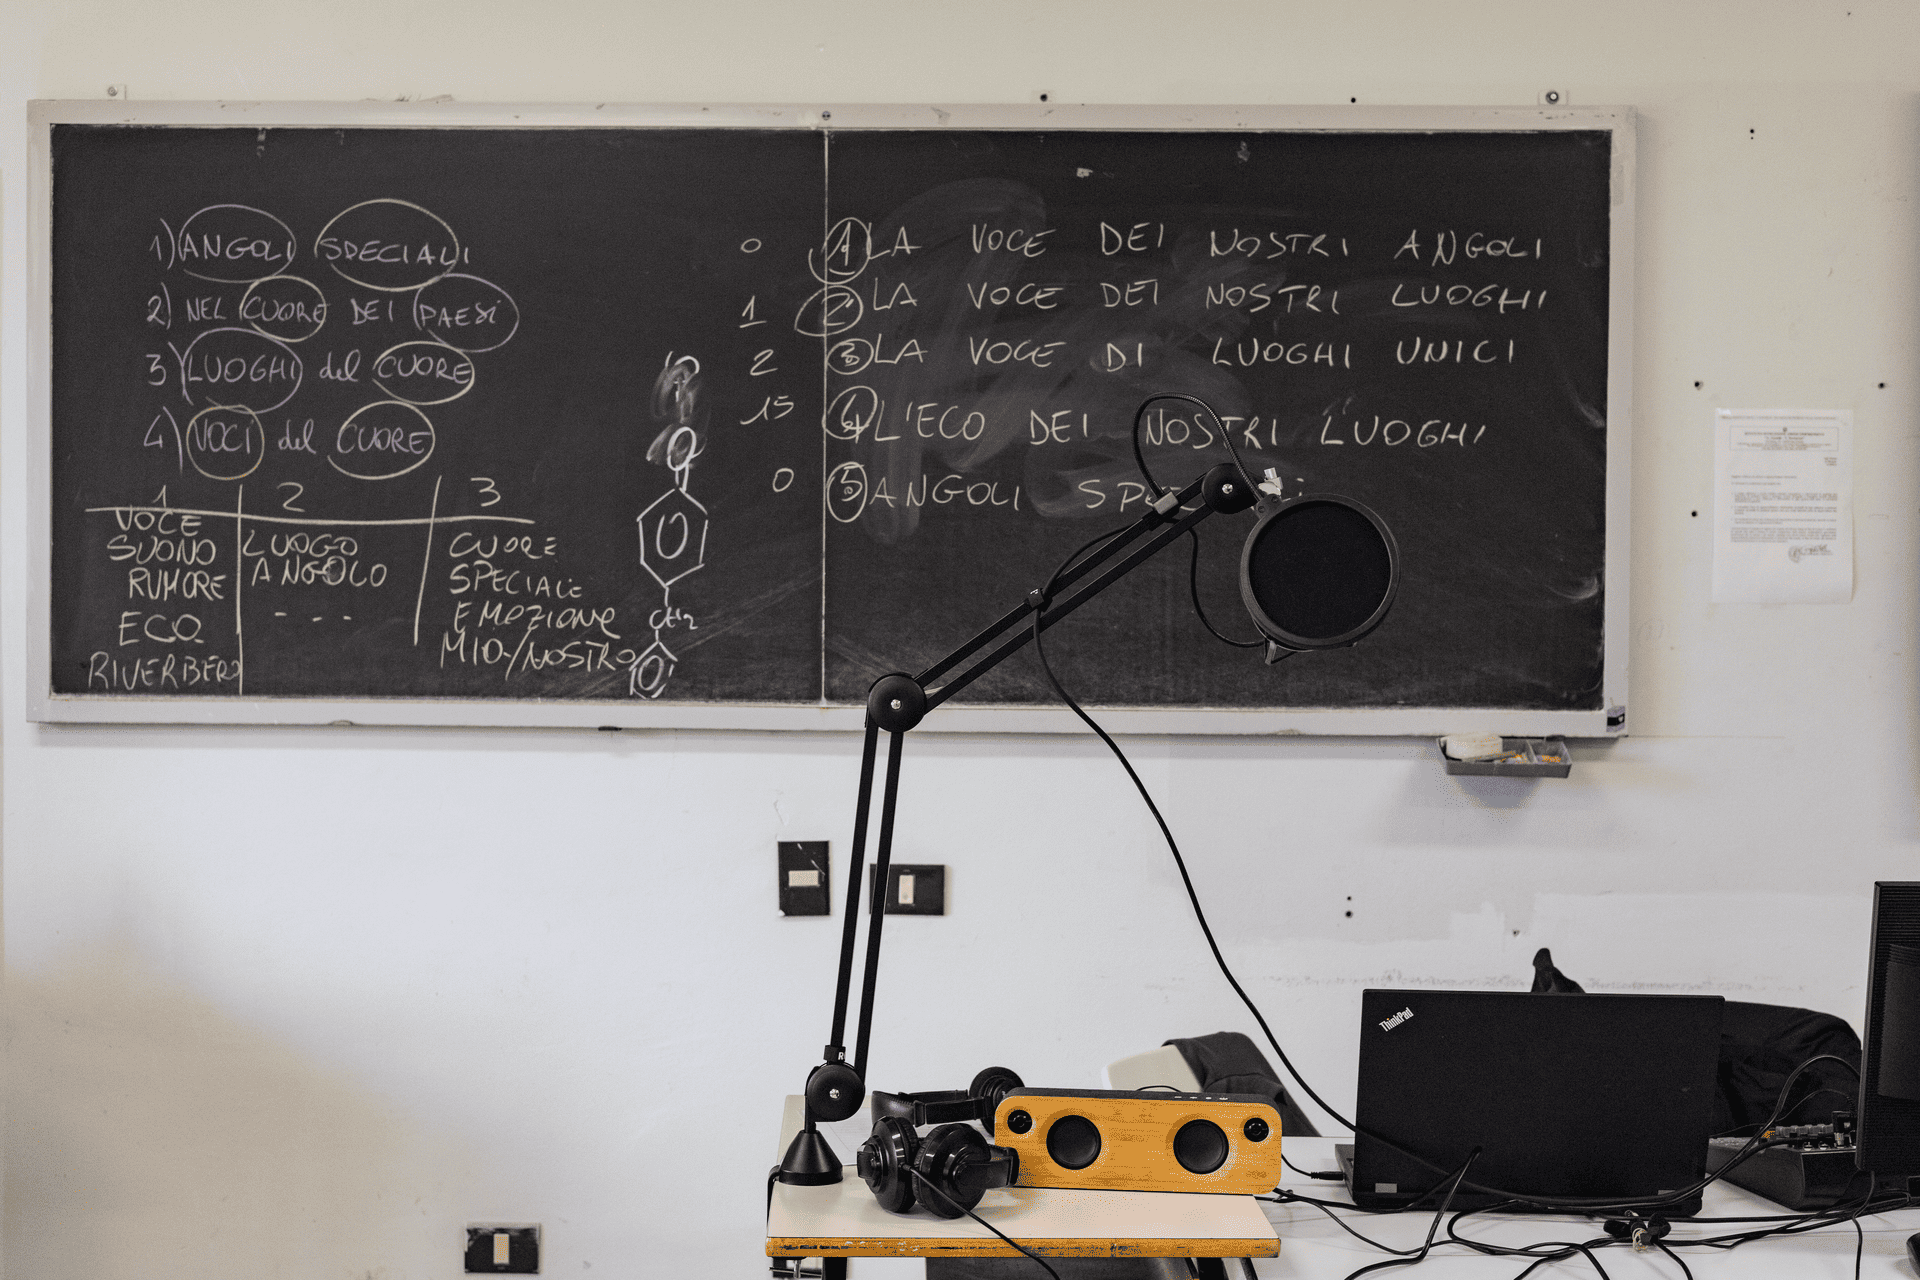 1) ANGOLI SPECIALI
2) NEL CUORE DEI PAESI
3) LUOGHI del CUORE
4) VOCI del CUORE
1 2 3
VOCE
SUONO LUOGO CUORE
RUMORE ANGOLO SPECIALE
ECO - - - EMOZIONE
RIVERBERO MIO/NOSTRO
CH2
0 1 LA VOCE DEI NOSTRI ANGOLI
1 2 LA VOCE DEI NOSTRI LUOGHI
2 3 LA VOCE DI LUOGHI UNICI
15 4 L'ECO DEI NOSTRI LUOGHI
0 5 ANGOLI
ThinkPad